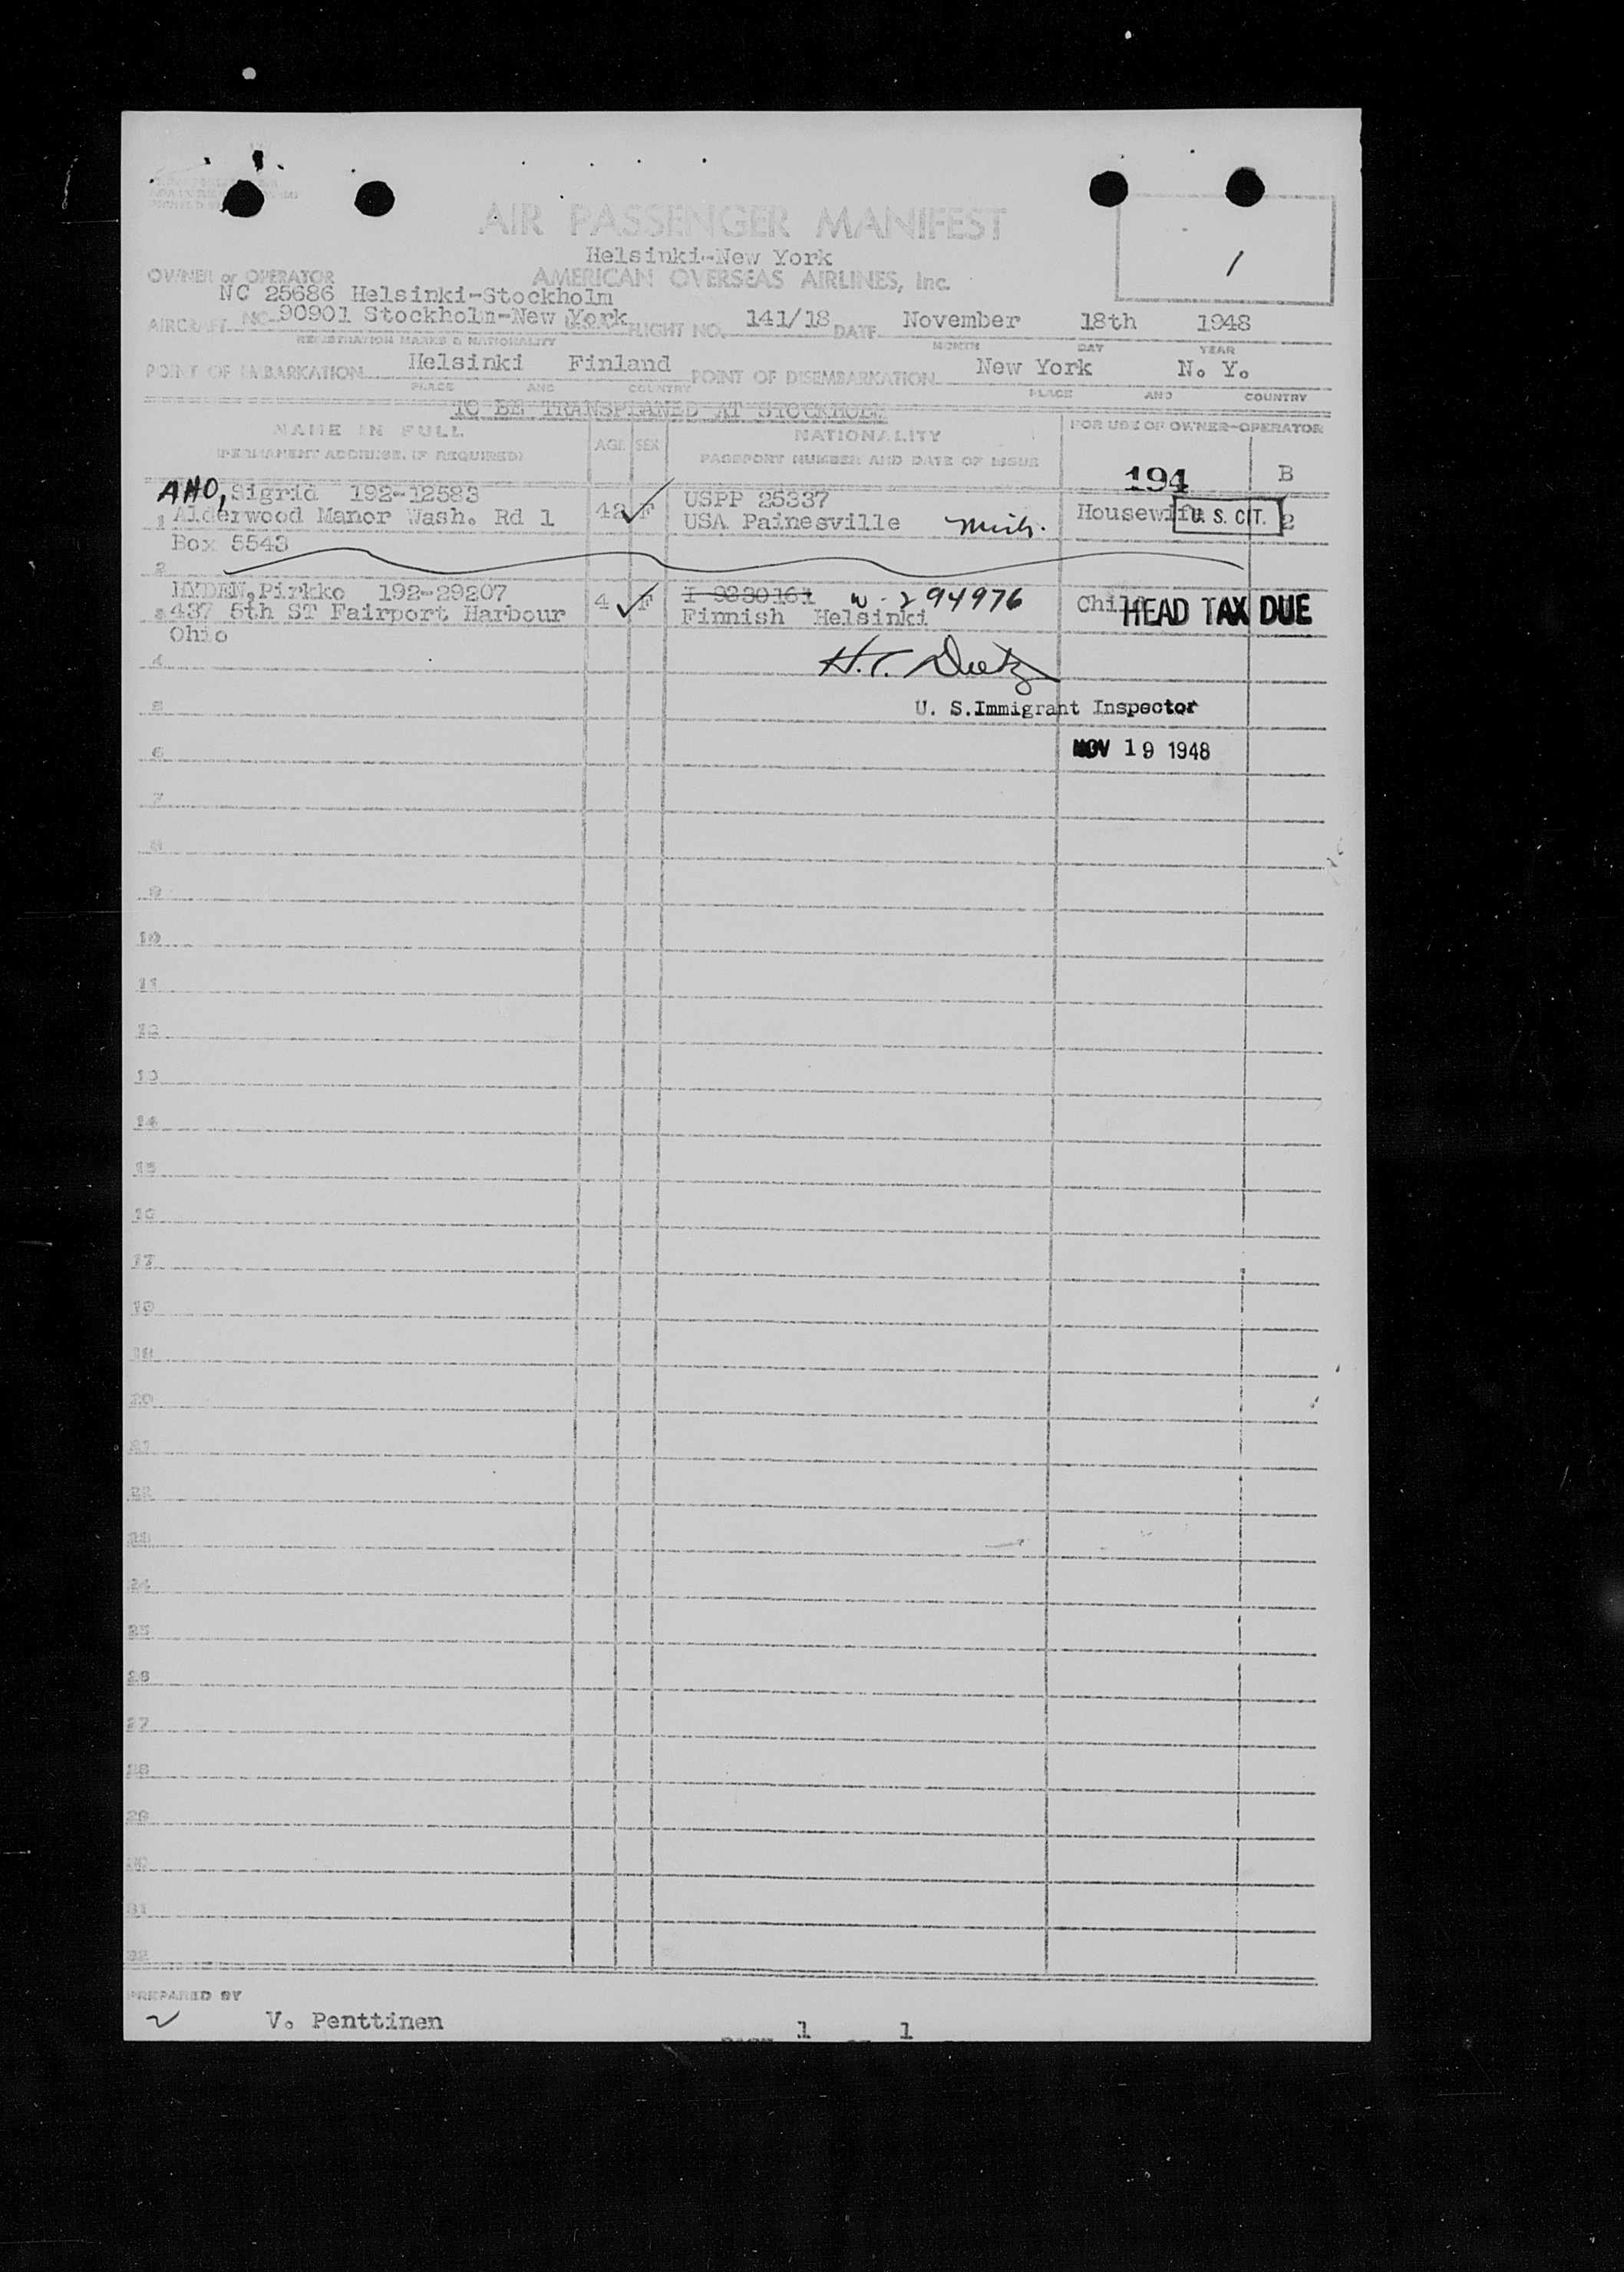 AIR PASSENGER MANIFEST
1
Helsinki-New York
OWNER or OPERATOR AMERICAN OVERSEAS AIRLINES, Inc.
NC 25686 Helsinki-Stockholm
AIRCRAFT NC 90901 Stockholm-New York FLIGHT NO. 141/18 DATE November 18th 1948
REGISTRATION MARKS & NATIONALITY MONTH DAY YEAR
POINT OF EMBARKATION Helsinki Finland POINT OF DISEMBARKATION New York N. Y.
PLACE AND COUNTRY PLACE AND COUNTRY
TO BE TRANSPLANED AT STOCKHOLM
NAME IN FULL AGE SEX NATIONALITY FOR USE OF OWNER-OPERATOR
(PERMANENT ADDRESS, IF REQUIRED) PASSPORT NUMBER AND DATE OF ISSUE
194 B
AHO, Sigrid 192-12583 F USPP 25337
1 Alderwood Manor Wash. Rd 1 USA Painesville Mich. Housewife U. S. CIT. 2
Box 5543
2
HYDEN, Pirkko 192-29207 4 F I 9830161 W-294976 Child HEAD TAX DUE
3 437 5th ST Fairport Harbour Finnish Helsinki
Ohio
4 H.T. Dietz
5 U. S. Immigrant Inspector
6 NOV 19 1948
7
8
9
10
11
12
13
14
15
16
17
18
19
20
21
22
23
24
25
26
27
28
29
30
31
32
PREPARED BY
V. Penttinen
PAGE 1 OF 1